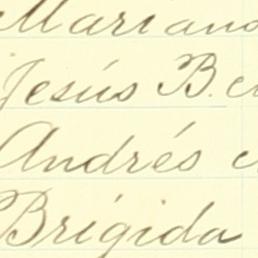 Mariano
Jesús B.
Andrés
Brígida